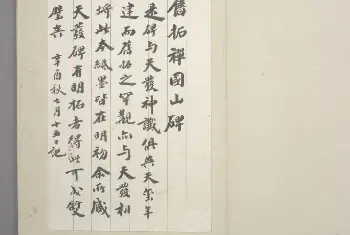 舊拓禪國山碑
是碑与天發神讖俱吳天璽年
建而舊拓之罕觀亦与天發相
埒此本紙墨皆在明初余所藏
天發碑有明拓者得此可成雙
璧矣 辛酉秋七月十五日記